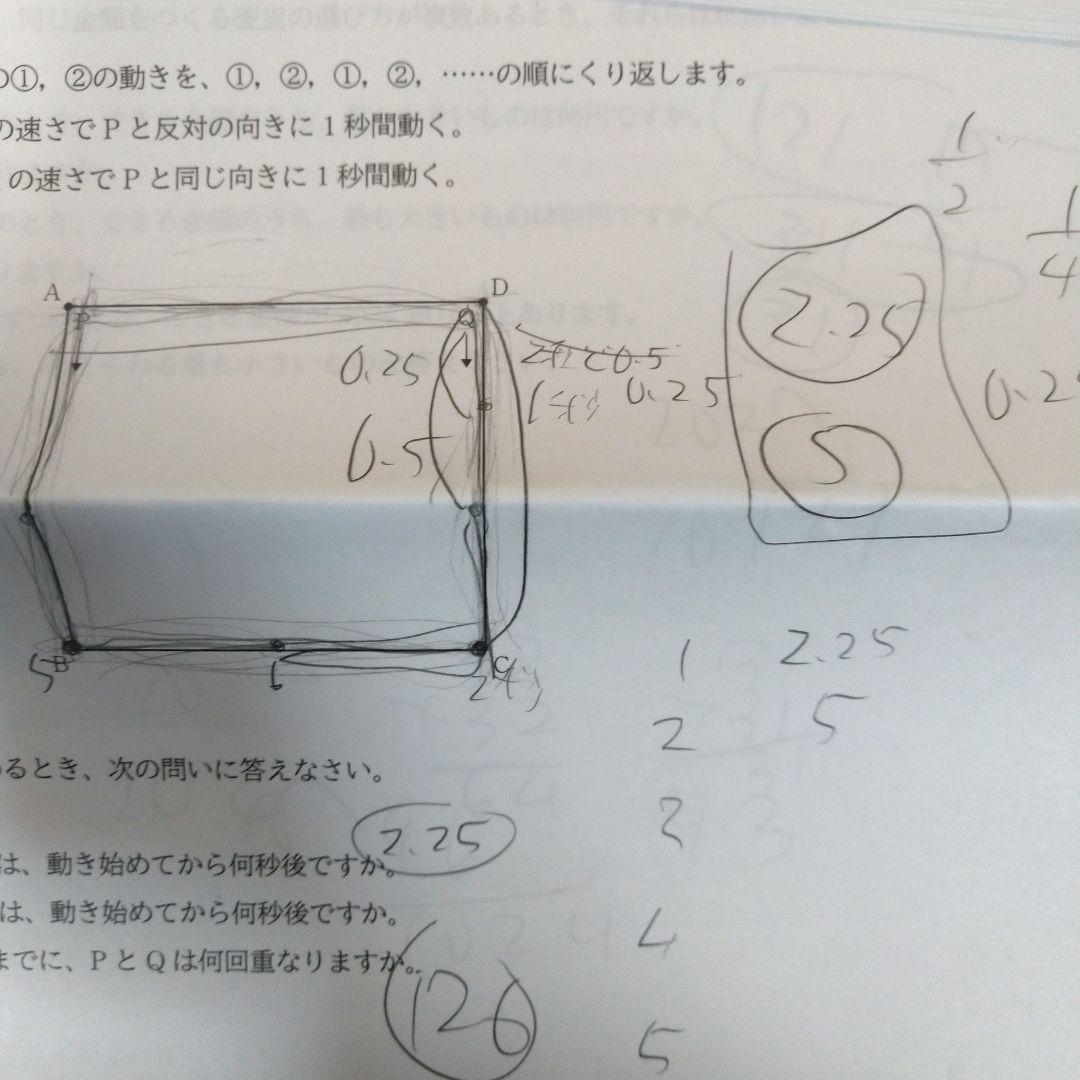 の①，②の動きを、①，②，①，②，……の順にくり返します。
の速さでPと反対の向きに1秒間動く。
の速さでPと同じ向きに1秒間動く。
1/2
1/4
A
D
P
Q
2.25
5
0.25
0.5
2秒で0.5
1秒 0.25
0.2
5
B
1
C
2秒
1 2.25
2 5
3
4
5
るとき、次の問いに答えなさい。
2.25
は、動き始めてから何秒後ですか。
は、動き始めてから何秒後ですか。
までに、PとQは何回重なりますか。
126